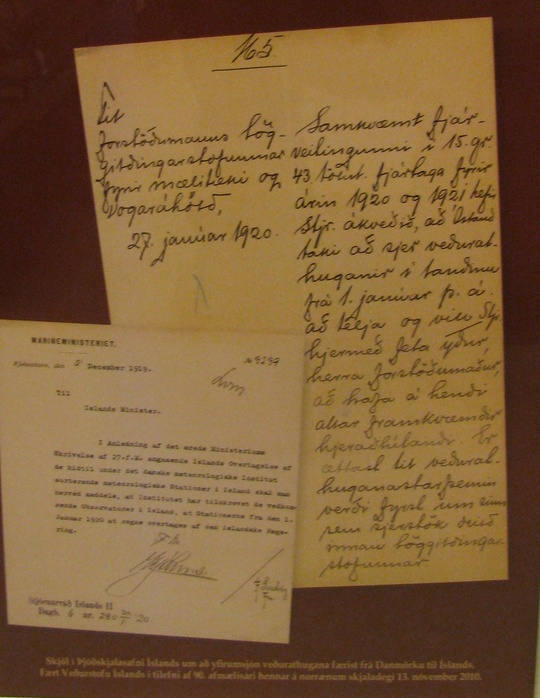 165
Til
forstöðumanns lög-
gildingarstofunnar
fyrir mælitæki og
vogaráhöld,
27. janúar 1920.
Samkvæmt fjár-
veitingunni í 15. gr.
43. tölul. fjárlaga fyrir
árin 1920 og 1921 hefir
Stjr. ákveðið, að Ísland
taki að sjer veðurat-
huganir í landinu
frá 1. janúar þ. á.
að telja og vill Stjr.
hjermeð fela yður,
herra forstöðumaður,
að hafa á hendi
allar framkvæmdir
hjeraðlútandi. Er
ætlast til veðurat-
huganastarfsemin
verði fyrst um sinn
sem sjerstök deild
innan löggildingar-
stofunnar
MARINEMINISTERIET.
Kjøbenhavn, den 5' December 1919.
№ 9297
Til
Islands Minister.
I Anledning af det ærede Ministeriums
Skrivelse af 27.f.M. angaaende Islands Overtagelse af
de hidtil under det danske meteorologiske Institut
sorterende meteorologiske Stationer i Island skal man
herved meddele, at Institutet har tilskrevet de vedkom-
mende Observatører i Island, at Stationerne fra den 1.
Januar 1920 at regne overtages af den islandske Rege-
ring.
Stjórnarráð Íslands II
Dagb. 6 nr. 280
Skjöl í Þjóðskjalasafni Íslands um að yfirumsjón veðurathugana færist frá Danmörku til Íslands.
Fært Veðurstofu Íslands í tilefni af 90. afmælisári hennar á norrænum skjaladegi 13. nóvember 2010.